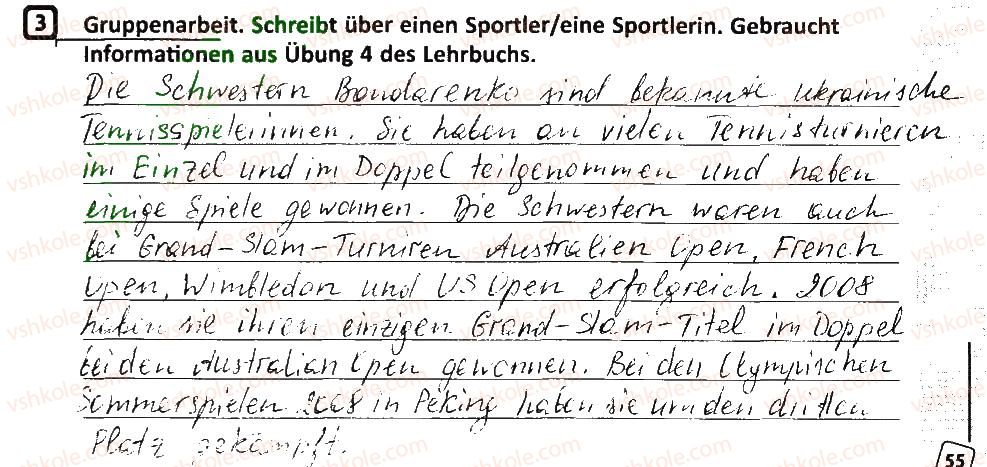 3 Gruppenarbeit. Schreibt über einen Sportler/eine Sportlerin. Gebraucht
Informationen aus Übung 4 des Lehrbuchs.
Die Schwestern Bondarenko sind bekannte ukrainische
Tennisspielerinnen. Sie haben an vielen Tennisturnieren
im Einzel und im Doppel teilgenommen und haben
einige Spiele gewonnen. Die Schwestern waren auch
bei Grand-Slam-Turniren Australien Open, French
Open, Wimbledon und US Open erfolgreich. 2008
haben sie ihren einzigen Grand-Slam-Titel im Doppel
bei den Australian Open gewonnen. Bei den Olympischen
Sommerspielen 2008 in Peking haben sie um den dritten
Platz gekämpft.
55